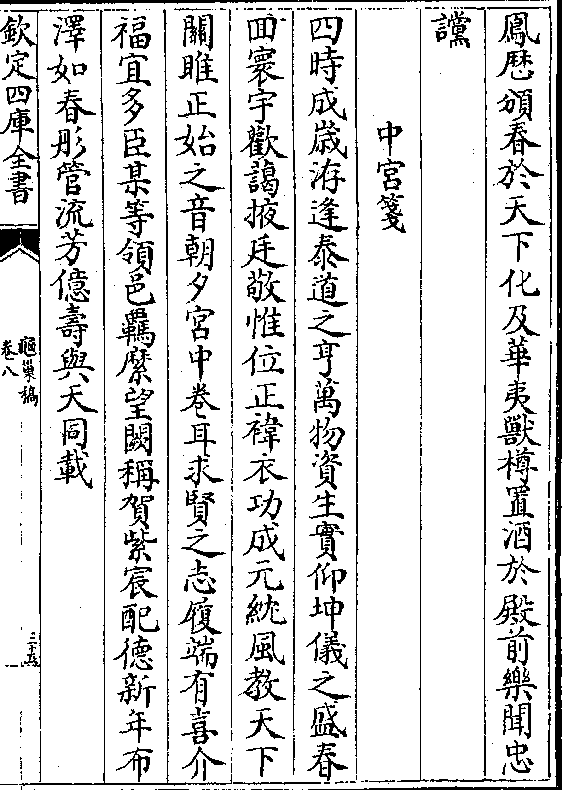 鳳厯頒春於天下化及華夷獸樽置酒於殿前樂聞忠
讜
中宮箋
四時成嵗洊逢泰道之亨萬物資生實仰坤儀之盛春
回寰宇歡藹掖廷敬惟位正褘衣功成元紞風教天下
關雎正始之音朝夕宮中卷耳求賢之志履端有喜介
福宜多臣某等領邑羈縻望闕稱賀紫宸配德新年布
澤如春彤管流芳億壽與天同載
欽定四庫全書
龜巢稿
卷八
二十五